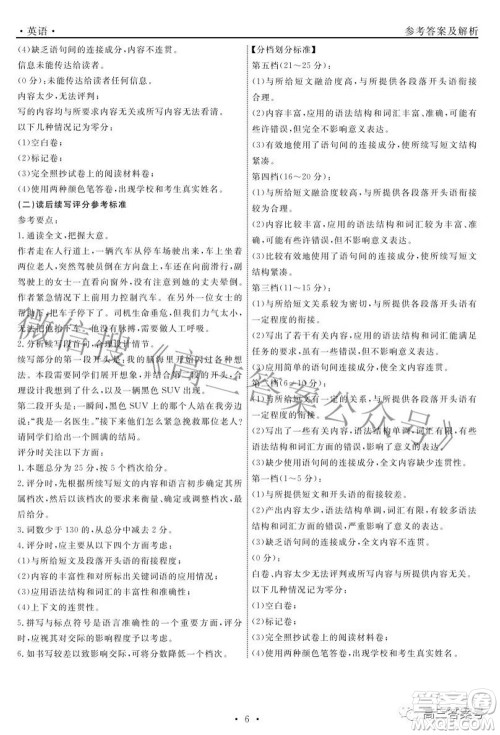 · 英语 ·
参考答案及解析
(4)缺乏语句间的连接成分,内容不连贯。
信息未能传达给读者。
(0分):未能传达给读者任何信息。
内容太少,无法评判。
写的内容均与所要求内容无关或无法看清。
以下几种情况记为零分:
(1)空白卷;
(2)标记卷;
(3)完全照抄试卷上的阅读材料卷;
(4)使用两种颜色笔答卷,出现考生和考点真实姓名。
(二)读后续写评分参考标准
参考要点:
1.通读全文,把握大意。
作者走在人行道上,一辆汽车从旁边经过,车里坐着
两位老人,突然间,汽车失控撞到人行道上,跑近看,副
驾驶上的女士吓坏了,而驾驶座上的他的丈夫晕倒。
作者紧急情况下用力控制汽车。在另外一位女士的
帮助下,把车子停下来。人们聚集起来,但只是力气太
大,无法给老人急救。他没有脉搏,需要做心肺复苏。
2.依据续写首句,合理设计情节。
续写部分的第一段开头,我的脑海里开始闪现出各种
想法。本段需要设计想法,并结合第二段的开头,合
理设计想到了什么办法,以及一辆黑色SUV的到来。
第二段开头是:一瞬间,黑色SUV上的那个人站在我
旁边说:“我是一名医生。”接下来他们怎么紧急施救要
请同学们给出一个圆满的结局。
评分时关注以下:
1.本题总分为25分,按5个档次给分。
2.评分时,应先根据所续写短文的内容和语言初步确
定其档次,然后以该档次的要求来衡量、确定或调整
档次,最后给分。
3.词数少于130的,从总分中减去2分。
4.评分时,应主要从以下四个方面考虑:
(1)与所给短文及段落开头语的衔接程度;
(2)内容的丰富性和对所标关键词语的应用情况;
(3)应用语法结构和词汇的丰富性和准确性;
(4)上下文的连贯性。
5.拼写与标点符号是语言准确性的一个重要方面,评
分时,应视其对交际的影响程度予以考虑。
6.如书写较差以致影响交际,可将分数降低一个档次。
【分档划分标准】
第五档(21~25分):
(1)与所给短文融洽度高,与所提供各段落开头语衔
接合理。
(2)内容丰富,应用的语法结构和词汇丰富、准确,可能有
些许错误,但完全不影响意义表达。
(3)有效地使用了语句间的连接成分,使所续写短文结构
紧凑。
第四档(16~20分):
(1)与所给短文融洽度较高,与所提供各段落开头语衔接
较为合理。
(2)内容比较丰富,应用的语法结构和词汇较为丰富、准
确,可能有些许错误,但不影响意义表达。
(3)比较有效地使用了语句间的连接成分,使所续写短文
结构紧凑。
第三档(11~15分):
(1)与所给短文关系较为密切,与所提供各段落开头语有
一定程度的衔接。
(2)写出了若干有关内容,应用的语法结构和词汇能满足
任务的要求,虽有一些错误,但不影响意义表达。
(3)应用简单的语句间的连接成分,使全文内容连贯。
第二档(6~10分):
(1)与所给短文有一定的关系,与所提供各段落开头语有
一定程度的衔接。
(2)写出了一些有关内容,语法结构单调、词汇项目有限,
有些语法结构和词汇方面的错误,影响了意义的表达。
(3)较少使用语句间的连接成分,全文内容缺少连贯性。
第一档(1~5分):
(1)与所提供短文和开头语的衔接较差。
(2)产出内容太少,语法结构单调,词汇项目很有限,有较
多语法结构和词汇方面的错误,严重影响了意义的表达。
(3)缺乏语句间的连接成分,全文内容不连贯。
(0分):
白卷、内容太少无法评判或所写内容与所提供内容无关。
以下几种情况记为零分:
(1)空白卷;
(2)标记卷;
(3)完全照抄试卷上的阅读材料卷;
(4)使用两种颜色笔答卷,出现考生和考点真实姓名。
微信搜《高三答案公众号》
· 6 ·
高三答案号
答案圈
MXQE.COM